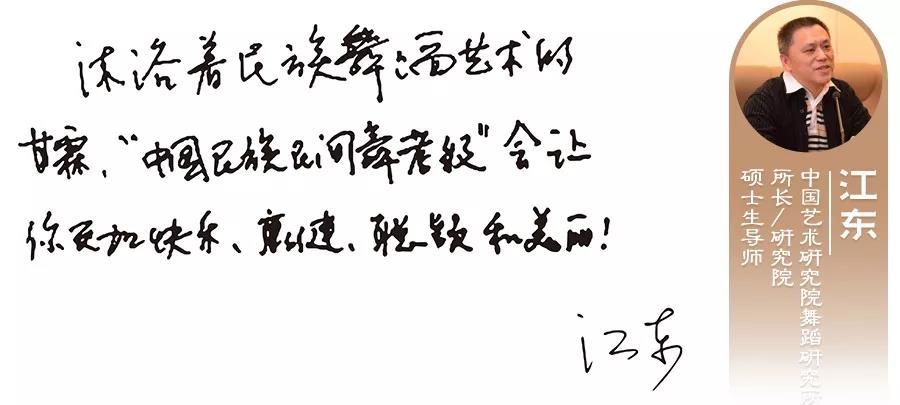 沐浴着民族舞蹈艺术的
甘霖，“中国民族民间舞考级”会让
你更加快乐、刚健、聪颖和美丽！
江东
江东
中国艺术研究院舞蹈研究所
所长/研究院
硕士生导师